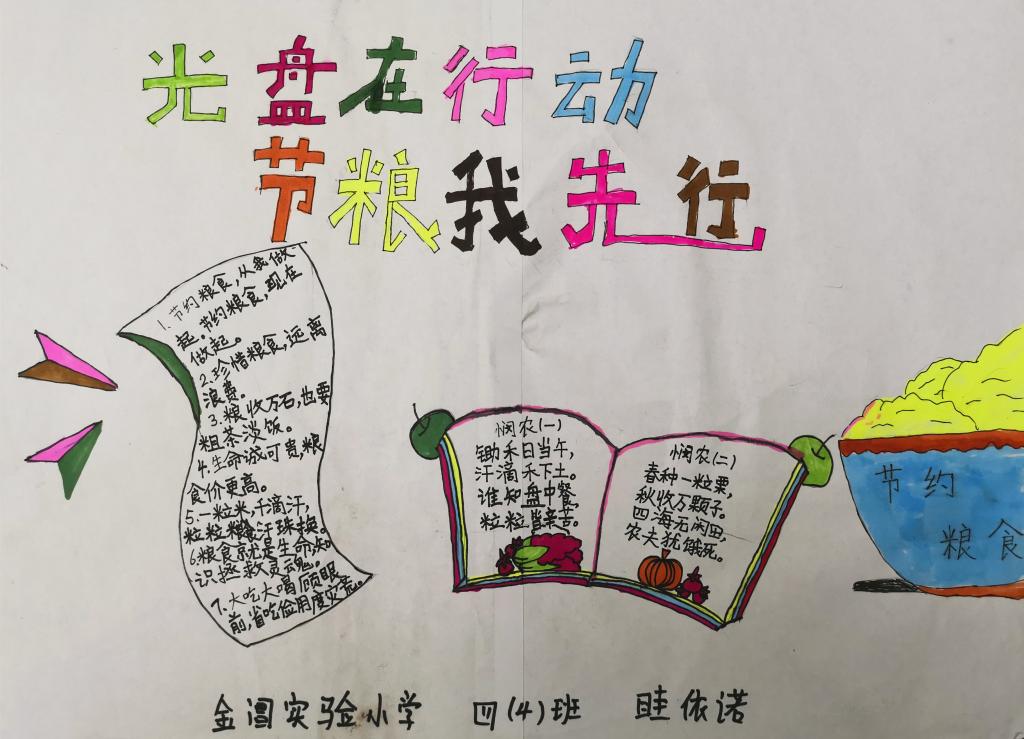 光盘在行动
节粮我先行
1.节约粮食,从我做
起。节约粮食,现在
做起。
2.珍惜粮食,远离
浪费。
3.粮收万石,也要
粗茶淡饭。
4.生命诚可贵,粮
食价更高。
5.一粒米,千滴汗,
粒粒粮食汗珠换。
6.粮食就是生命,知
识拯救灵魂。
7.大吃大喝顾眼
前,省吃俭用度灾荒。
悯农(一)
锄禾日当午,
汗滴禾下土。
谁知盘中餐,
粒粒皆辛苦。
悯农(二)
春种一粒粟,
秋收万颗子。
四海无闲田,
农夫犹饿死。
节约
粮食
金阊实验小学 四(4)班 眭依诺